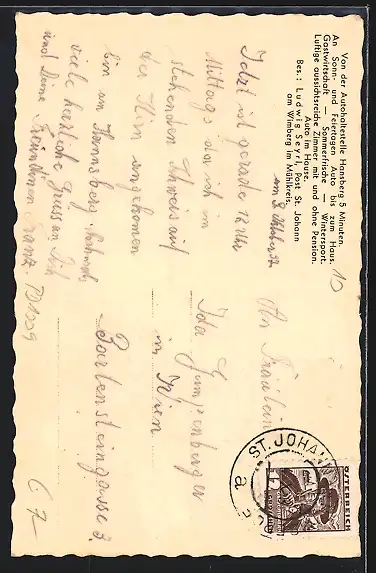 Von der Autohaltestelle Hansberg 5 Minuten.
An Sonn- und Feiertagen Auto bis zum Haus.
Gastwirtschaft — Sommerfrische — Wintersport.
Luftige aussichtsreiche Zimmer mit und ohne Pension.
Auto im Hause.
Bes.: Ludwig Seyrl, Post St. Johann
am Wimberg im Mühlkreis.
Jetzt ist gerade 12 Uhr
Mittags da ich im
stehenden Schweis auf
der Hien angekomen
bin am Hannsberg.
viele herzliche Grüsse an Dich
und Deine Freundinen Franz
An Fräulein
Ida
in Wien
Bartensteingasse 3
ST. JOHAN
a
ÖSTERREICH
12
10